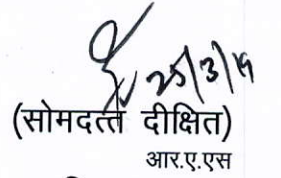 25/3/19
(सोमदत्त दीक्षित)
आर.ए.एस